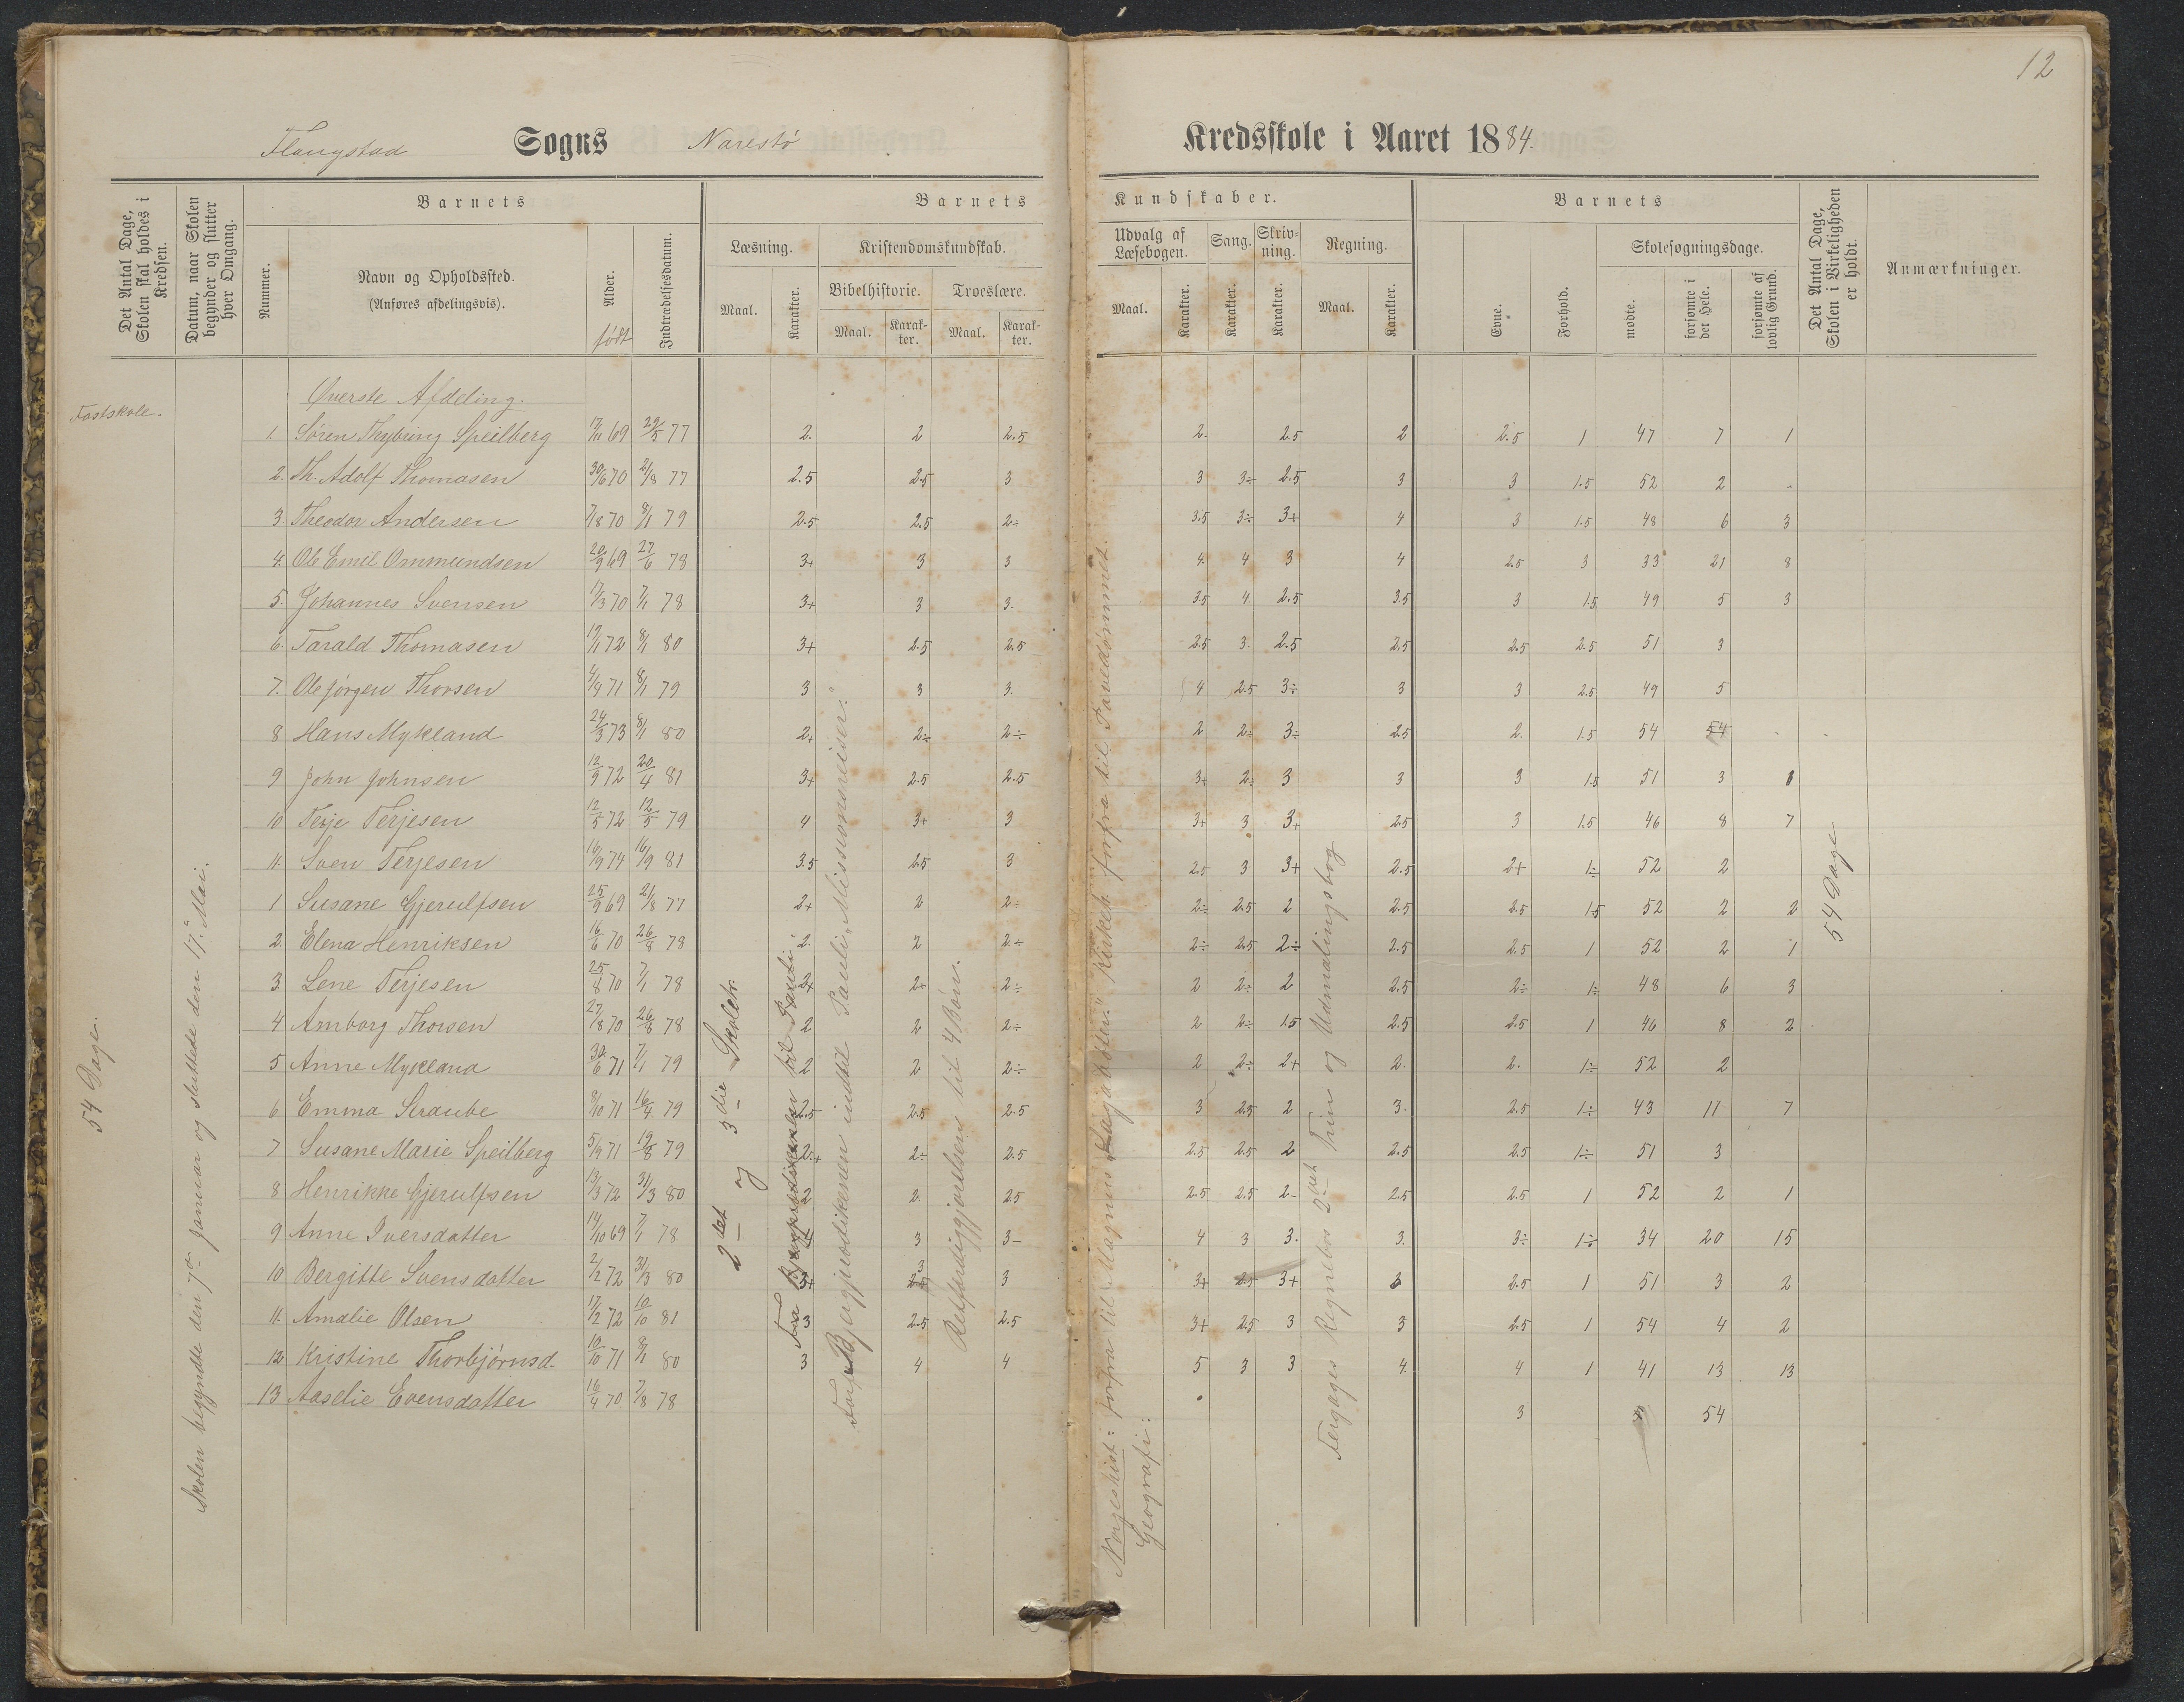 12
Flangstad Sogns Narestö Kredsskole i Aaret 1884.
Det Antal Dage, Skolen skal holdes i Kredsen.
Datum, naar Skolen begynder og slutter hver Omgang.
Barnets
Nummer.
Navn og Opholdssted.
(Anføres afdelingsvis).
Alder.
født
Indtrædelsesdatum.
Barnets Kundskaber.
Læsning.
Maal.
Karakter.
Kristendomskundskab.
Bibelhistorie.
Maal.
Karakter.
Troeslære.
Maal.
Karakter.
Udvalg af Læsebogen.
Maal.
Karakter.
Sang.
Karakter.
Skrivning.
Karakter.
Regning.
Maal.
Karakter.
Barnets
Evne.
Forhold.
Skolesøgningsdage.
mødte.
forsømte i det Hele.
forsømte af lovlig Grund.
Det Antal Dage, Skolen i Virkeligheden er holdt.
Anmærkninger.
Fastskole.
Øverste Afdeling.
1. Søren Thybring Speilberg 17/11 69 29/5 77 2. 2 2.5 2. 2.5 2 2.5 1 47 7 1
2. Th. Adolf Thomasen 30/6 70 2/8 77 2.5 2.5 3 3 3÷ 2.5 3 3 1.5 52 2 .
3. Theodor Andersen 7/8 70 8/1 79 2.5 2.5 2÷ 3.5 3÷ 3+ 4 3 1.5 48 6 3
4. Ole Emil Ommundsen 20/9 69 27/6 78 3+ 3 3 4. 4 3 4 2.5 3 33 21 8
5. Johannes Svensen 17/3 70 7/1 78 3+ 3 3. 3.5 4. 2.5 3.5 3 1.5 49 5 3
6. Tarald Thomasen 19/1 72 8/1 80 3+ 2.5 2.5 2.5 3. 2.5 2.5 2.5 2.5 51 3
7. Ole Jörgen Thorsen 4/4 71 8/1 79 3 3 3. 4 2.5 3÷ 3 3 2.5 49 5
8 Hans Mykland 24/3 73 8/1 80 2+ 2÷ 2÷ 2 2÷ 3÷ 2.5 2. 1.5 54 54 . .
9 John Johnsen 12/9 72 20/4 81 3+ 2.5 2.5 3+ 2÷ 3 3 3 1.5 51 3 1
10 Terje Terjesen 12/5 72 12/5 79 4 3+ 3 3+ 3 3+ 2.5 3 1.5 46 8 7
11. Sven Terjesen 16/9 74 16/9 81 3.5 2.5 3 2.5 3 3+ 2.5 2+ 1÷ 52 2
1 Susane Gjerulfsen 25/9 69 2/8 77 2+ 2 2÷ 2÷ 2.5 2 2.5 2.5 1.5 52 2 2
2. Elena Henriksen 16/6 70 26/8 78 2. 2 2÷ 2÷ 2.5 2÷ 2.5 2.5 1 52 2 1
3. Lene Terjesen 25/8 70 7/1 78 2+ 2+ 2÷ 2 2÷ 2 2.5 2÷ 1÷ 48 6 3
4 Amborg Thorsen 27/8 70 26/8 78 2 2 2÷ 2 2÷ 1.5 2.5 2.5 1 46 8 2
5 Anne Mykland 30/6 71 7/1 79 2 2 2÷ 2 2÷ 2+ 2. 2. 1÷ 52 2
6 Emma Straube 8/10 71 16/4 79 2.5 2.5 2.5 3 2.5 2 3. 2.5 1÷ 43 11 7
7 Susane Marie Speilberg 5/9 71 19/8 79 2+ 2÷ 2.5 2.5 2.5 2 2.5 2.5 1÷ 51 3
8. Henrikke Gjerulfsen 13/3 72 31/3 80 2 2. 2.5 2.5 2.5 2- 2.5 2.5 1 52 2 1
9 Anne Iversdatter 14/10 69 7/1 78 3 3- 4 3 3. 3. 3÷ 1÷ 34 20 15
10 Bergitte Svensdatter 2/2 72 31/3 80 3+ 3 3 3+ 2.5 3+ 3 2.5 1 51 3 2
11. Amalie Olsen 17/2 72 10/10 81 3 2.5 2.5 3+ 2.5 3 3 2.5 1 54 4 2
12 Kristine Thorbjörnsd. 10/10 71 8/1 80 3 4 4 5 3 3 4. 4 1 41 13 13
13 Aaselie Evensdatter 16/4 70 7/8 78 3 54
54 Dage.
Skolen begyndte den 7de Januar og sluttede den 17. Mai.
2det og 3die Skoletr.
Fra Bjergprædikenen til Pauli
Forfra Bjergprædikenen indtil Pauli „Missionsreiser."
Retfærdiggjørelsen til 4 Bøn.
Norgeshist: forfra til Magnus Lagabøter." Kirkeh. forfra til Pavedømmet.
Geografi:
Fergages Regnebog 2det Trin og Udmaalingsbog
54 Dage